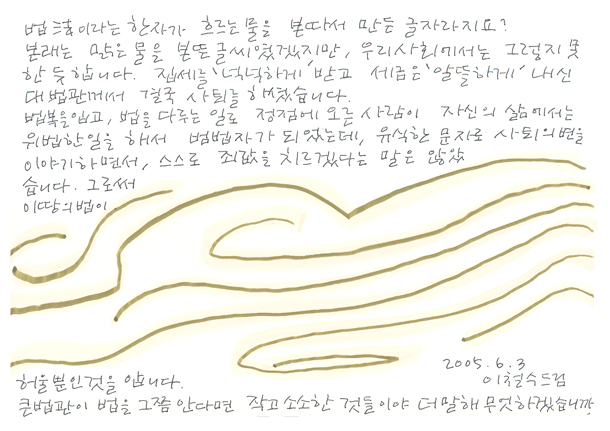 법法이라는 한자가 흐르는 물을 본따서 만든 글자라지요?
본래는 맑은 물을 본뜬 글씨였겠지만, 우리사회에서는 그렇지 못
한 듯 합니다. 집세를 '넉넉하게' 받고 세금은 '알뜰하게' 내신
대법관께서 결국 사퇴를 하셨습니다.
법복을 입고, 법을 다루는 일로 정점에 오른 사람이 자신의 삶에서는
위법한 일을 해서 범법자가 되었는데, 유식한 문자로 사퇴의 변을
이야기하면서, 스스로 죄값을 치르겠다는 말은 않았
습니다. 그로써
이땅의 법이
허울뿐인 것을 압니다.
2005.6.3
이철수드림
큰법관이 법을 그쯤 안다면 작고 소소한 것들이야 더 말해 무엇하겠습니까